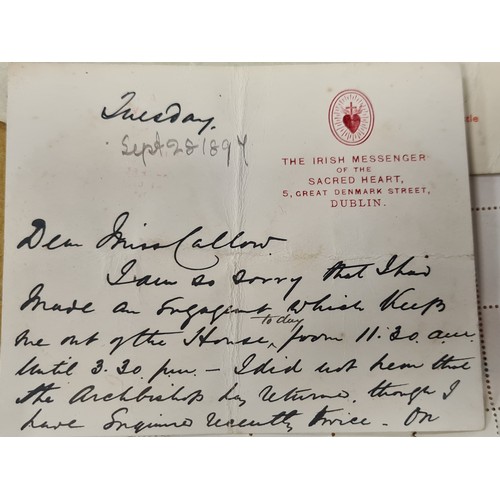 Tuesday.
Sept 28 1897
THE IRISH MESSENGER
OF THE
SACRED HEART,
5, GREAT DENMARK STREET,
DUBLIN.
Dear Miss Callow
I am so sorry that I had
made an engagent which keeps
me out of the House, today from 11.30 a.m.
until 3.30 pm. – I did not hear that
the Archbishop had returned, though I
have enquired recently twice – On